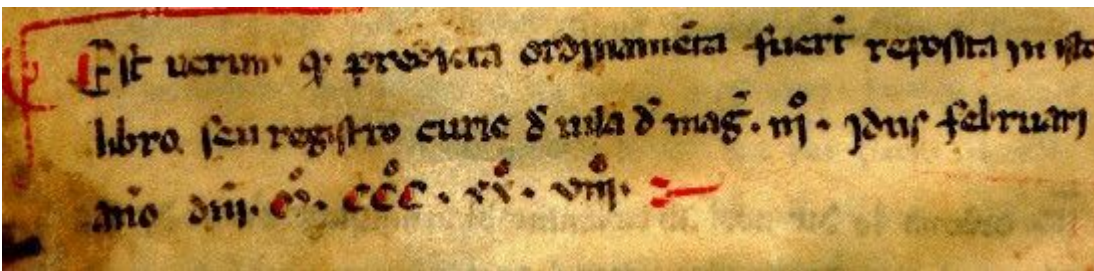 Est uerum q̢ predicta ordinamēta fuert̄ reposita in isto
libro seu registro curie d̄ uila d̄ mag̃. iijº. idus februarij
año dñi. Mº. CCCº. XXº. viiijº.